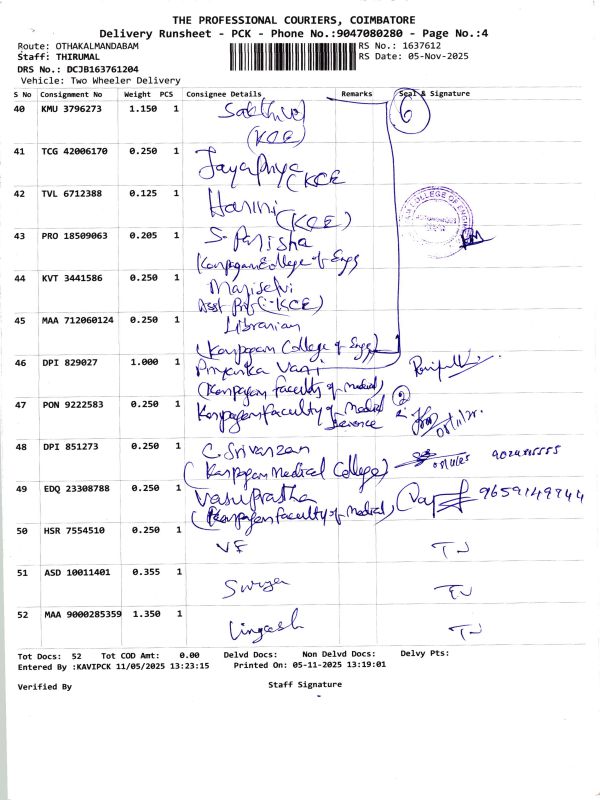 THE PROFESSIONAL COURIERS, COIMBATORE
Delivery Runsheet - PCK - Phone No.:9047080280 - Page No.:4
Route: OTHAKALMANDABAM RS No.: 1637612
Staff: THIRUMAL RS Date: 05-Nov-2025
DRS No.: DCJB163761204
Vehicle: Two Wheeler Delivery
S No Consignment No Weight PCS Consignee Details Remarks Seal & Signature
40 KMU 3796273 1.150 1 Sakthivel 6
(KCE)
41 TCG 42006170 0.250 1 Jayapriya (KCE
42 TVL 6712388 0.125 1 Harini (KCE)
COLLEGE OF
43 PRO 18509063 0.205 1 S.
Karpagam College of Engg
44 KVT 3441586 0.250 1 Mariselvi
Asst Prof (KCE)
45 MAA 712060124 0.250 1 Librarian
(Karpagam College of Engg)
46 DPI 829027 1.000 1 Priyanka
(Karpagam faculty of medical)
47 PON 9222583 0.250 1 Karpagam faculty of Medical 2
science
48 DPI 851273 0.250 1 C.
(Karpagam Medical College)
49 EDQ 23308788 0.250 1 Vasupratha 9659149744
(Karpagam faculty of medical)
50 HSR 7554510 0.250 1
51 ASD 10011401 0.355 1 Surya
52 MAA 9000285359 1.350 1 Lingesh
Tot Docs: 52 Tot COD Amt: 0.00 Delvd Docs: Non Delvd Docs: Delvy Pts:
Entered By :KAVIPCK 11/05/2025 13:23:15 Printed On: 05-11-2025 13:19:01
Verified By Staff Signature